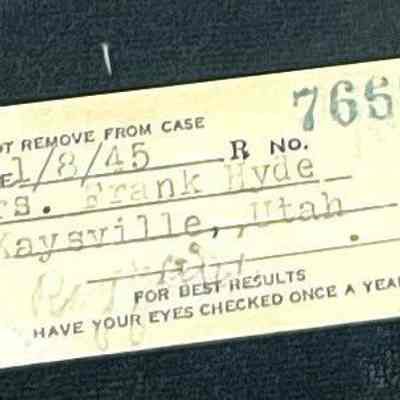 765
OT REMOVE FROM CASE
E 1/8/45 R NO.
rs. Frank Hyde
Kaysville, Utah
FOR BEST RESULTS
HAVE YOUR EYES CHECKED ONCE A YEAR